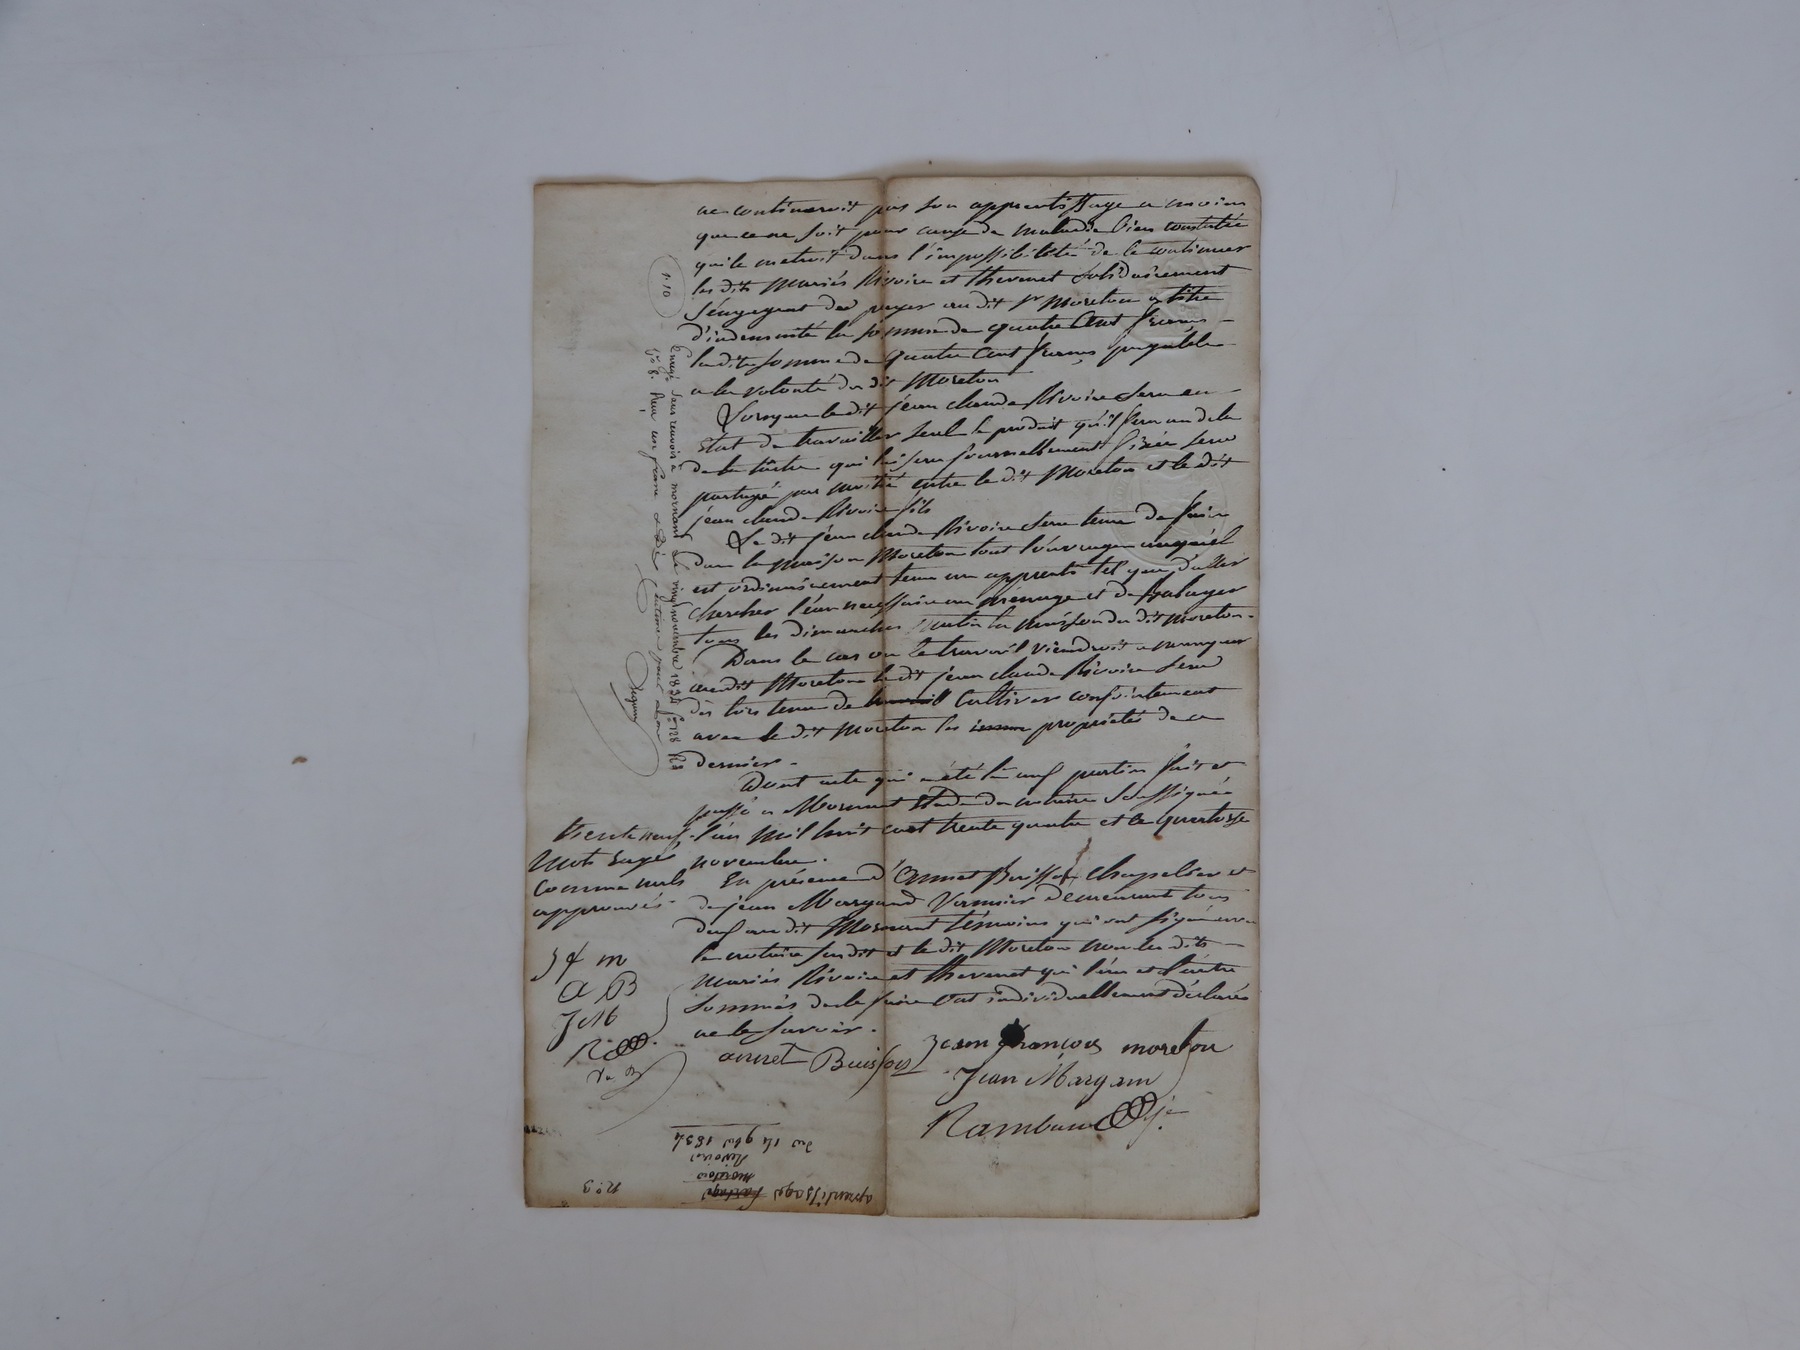 ne continueroit pas son apprentissage a moins
que ce ne soit pour cause de maladie bien constatée
qui le metroit dans l'impossibilité de le continuer
les dits mariés Rivoire et thevenet solidairement
s'engagent de payer au dit Sr Moreton a titre
d'indemnité la somme de quatre Cent francs
la dite somme de quatre Cent francs payable
a la volonté du dit Moreton
Lorsque le dit jean claude Rivoire sera en
état de travailler seul le produit qu'il fera au dela
de la tâche qui lui sera journellement fixée sera
partagé par moitié entre le dit Moreton et le dit
jean claude Rivoire fils
Le dit jean claude Rivoire sera tenu de faire
dans la maison Moreton tout l'ouvrage auquel
est ordinairement tenu un apprenti tel que d'aller
chercher l'eau necessaire au menage et de balayer
tous les dimanches matin la maison du dit Moreton
Dans le cas ou le travail viendroit a manquer
au dit Moreton le dit jean claude Rivoire sera
dès lors tenu de cultiver conjointement
avec le dit Moreton les propriétés de ce
dernier
Dont acte qui a été lu aux parties fait et
passé a Mornant Etude du notaire soussigné
l'an mil huit cent trente quatre et le quatorze
novembre.
En présence d'annet Buisson chapelier et
de jean Margand demeurant tous
deux au dit Mornant témoins qui ont signé avec
le notaire susdit et le dit Moreton non les dits
mariés Rivoire et thevenet qui l'un et l'autre
sommés de le faire ont individuellement déclarés
ne le savoir.
annet Buisson
jean françois moreton
Jean Margam
Rambaud
trente neuf
mots rayés
comme nuls
approuvés
J f m
a B
J M
R
1.10
Enregé sans renvoi à mornant le vingt novembre 1834 fo 128
Reçu un franc et dix centimes pour
aprentissage
moreton
Rivoire
du 14 9bre 1834
no 3